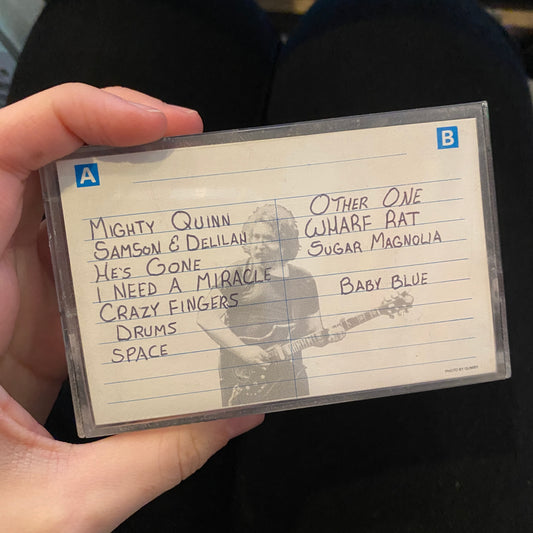 A
B
MIGHTY QUINN
SAMSON & DELILAH
HE'S GONE
I NEED A MIRACLE
CRAZY FINGERS
DRUMS
SPACE
OTHER ONE
WHARF RAT
SUGAR MAGNOLIA
BABY BLUE
PHOTO BY GUMBY